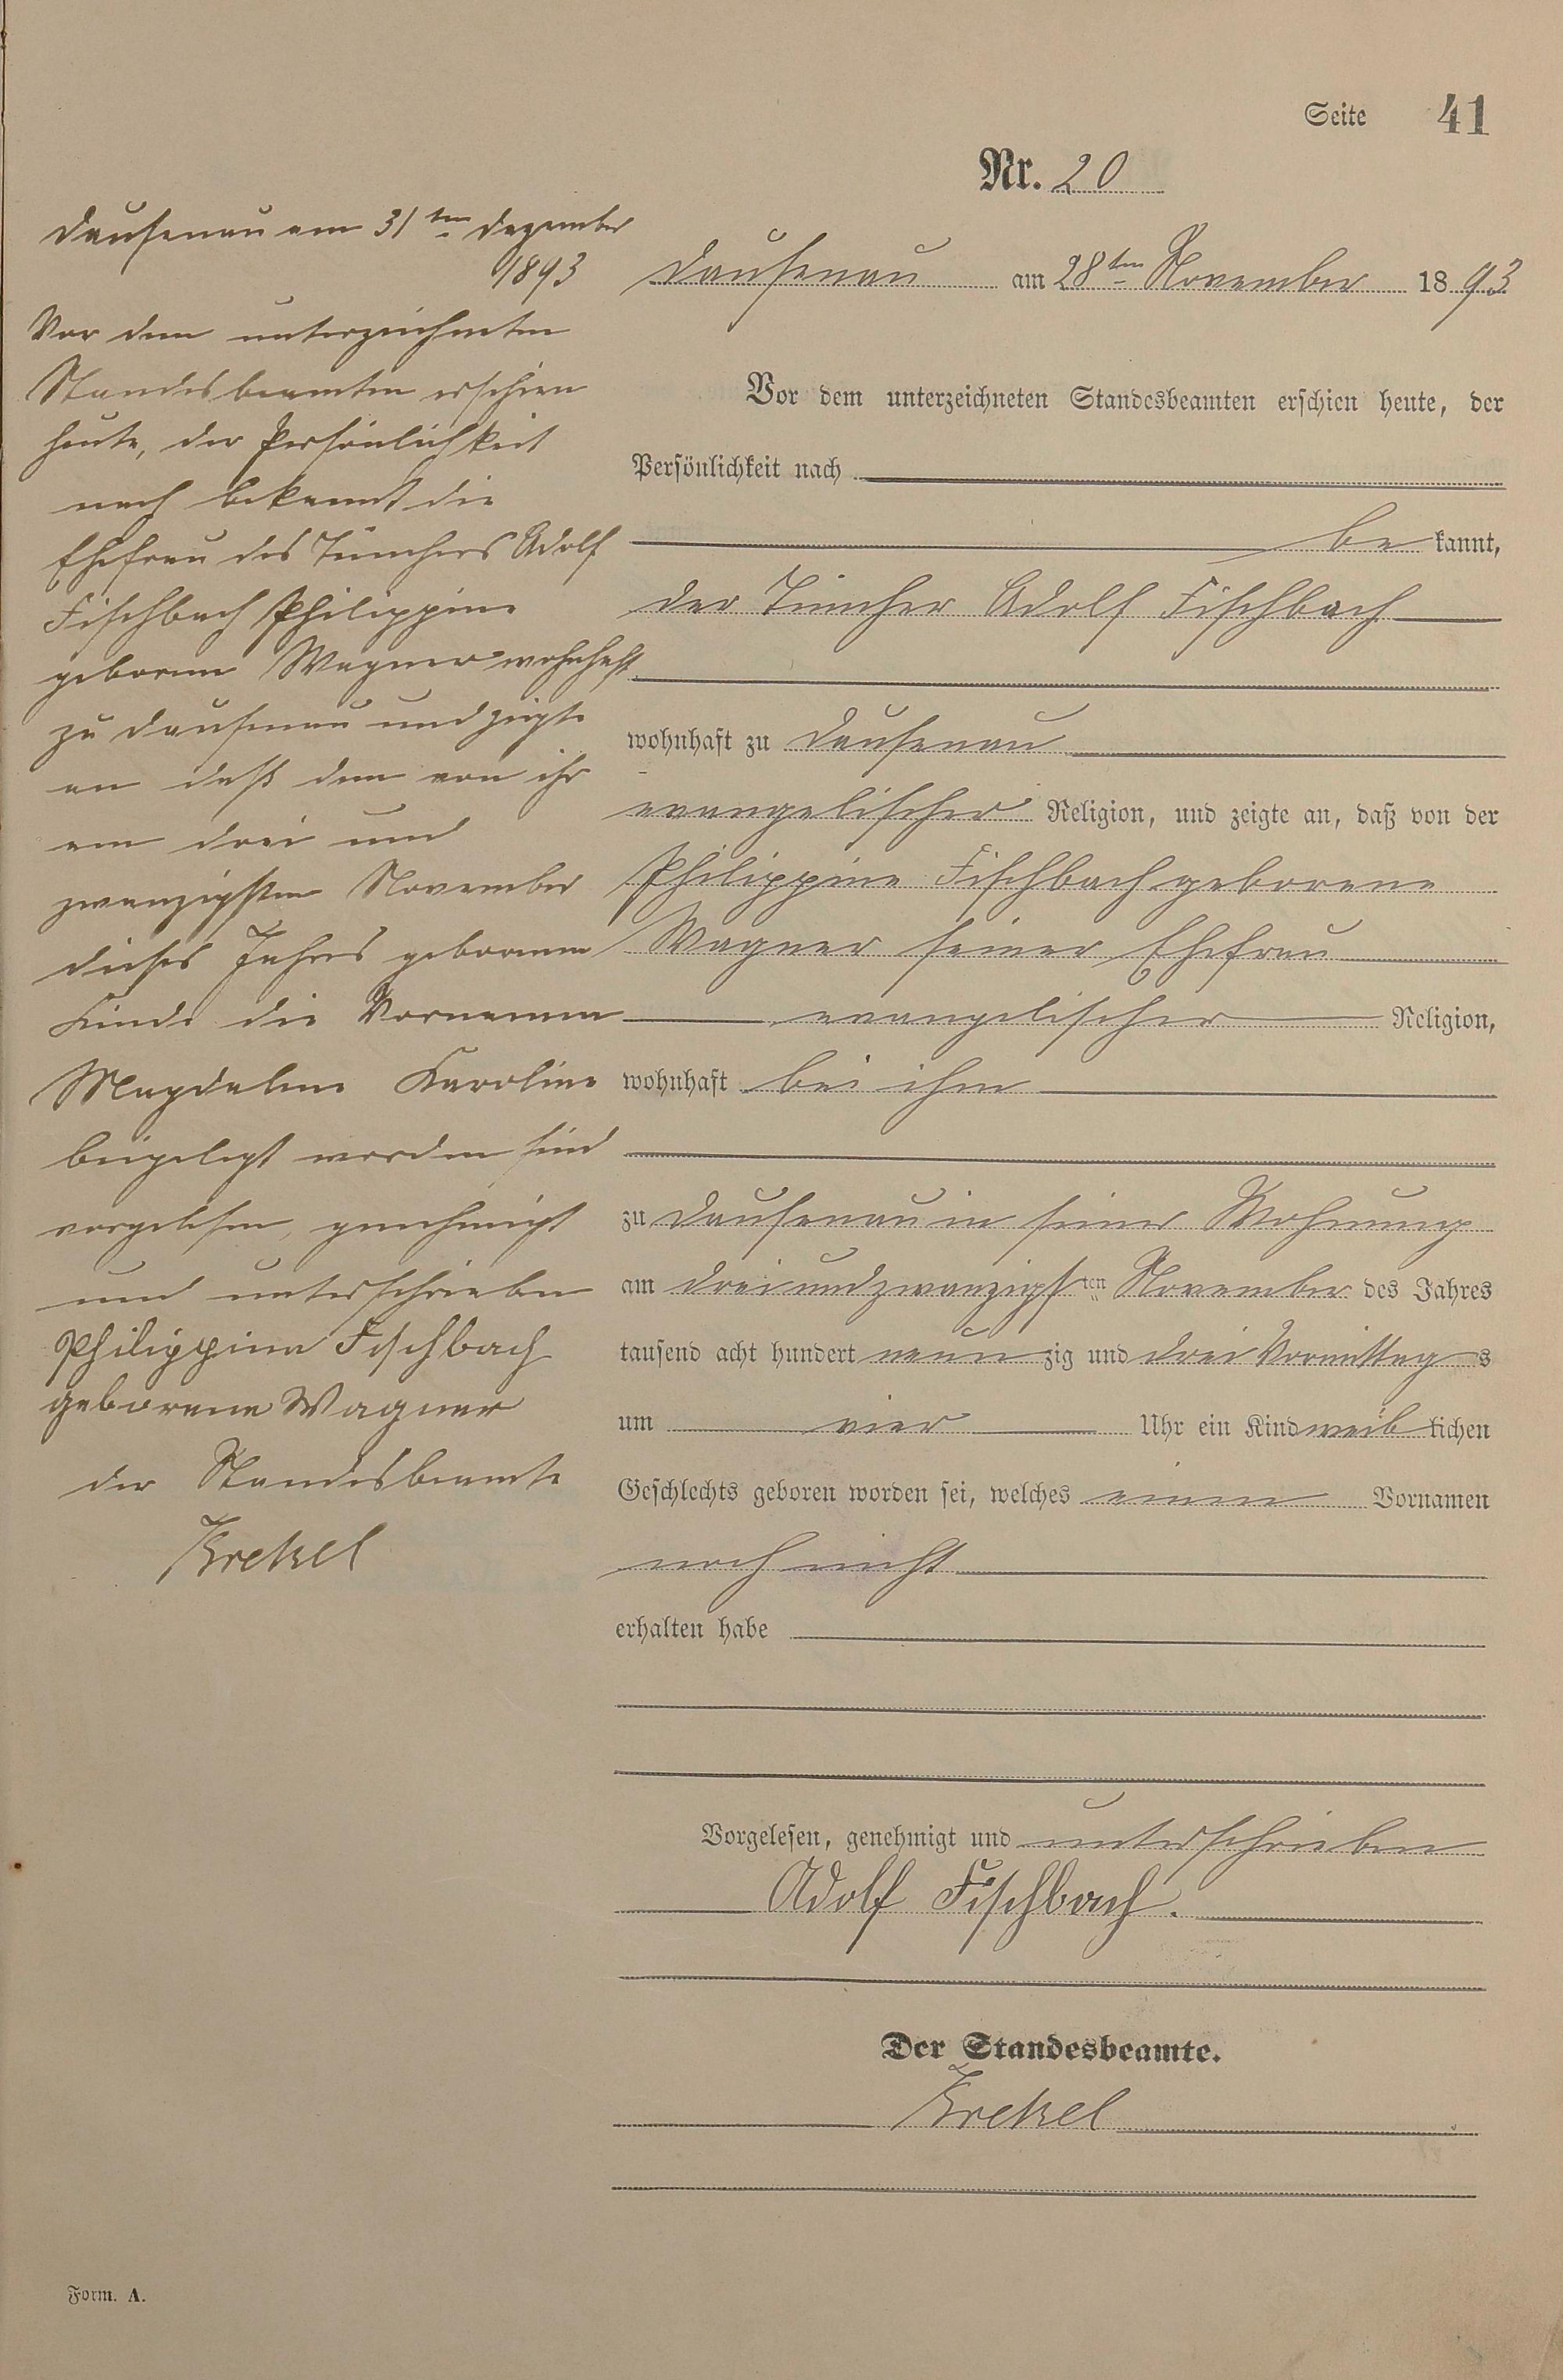 Seite 41
Nr. 20
Dausenau am 31ten Dezember
1893
Vor dem unterzeichneten
Standesbeamten erschien
heute, der Persönlichkeit
nach bekannt die
Ehefrau des Tünchers Adolf
Fischbach Philippine
geborene Wagner wohnhaft
zu Dausenau und zeigte
an daß dem von ihr
am drei und
zwanzigsten November
dieses Jahres geborenen
Kinde die Vornamen
Magdalene Karoline
beigelegt worden sind
vorgelesen, genehmigt
und unterschrieben
Philippina Fischbach
geborene Wagner
der Standesbeamte
Krekel
Dausenau am 28ten November 1893
Vor dem unterzeichneten Standesbeamten erschien heute, der
Persönlichkeit nach
bekannt,
der Tüncher Adolf Fischbach
wohnhaft zu Dausenau
evangelischer Religion, und zeigte an, daß von der
Philippine Fischbach geborene
Wagner seiner Ehefrau
evangelischer Religion,
wohnhaft bei ihm
zu Dausenau in seiner Wohnung
am dreiundzwanzigsten November des Jahres
tausend acht hundert neunzig und drei Vormittags
um vier Uhr ein Kind weiblichen
Geschlechts geboren worden sei, welches einen Vornamen
noch nicht
erhalten habe
Vorgelesen, genehmigt und unterschrieben
Adolf Fischbach.
Der Standesbeamte.
Krekel
Form. A.